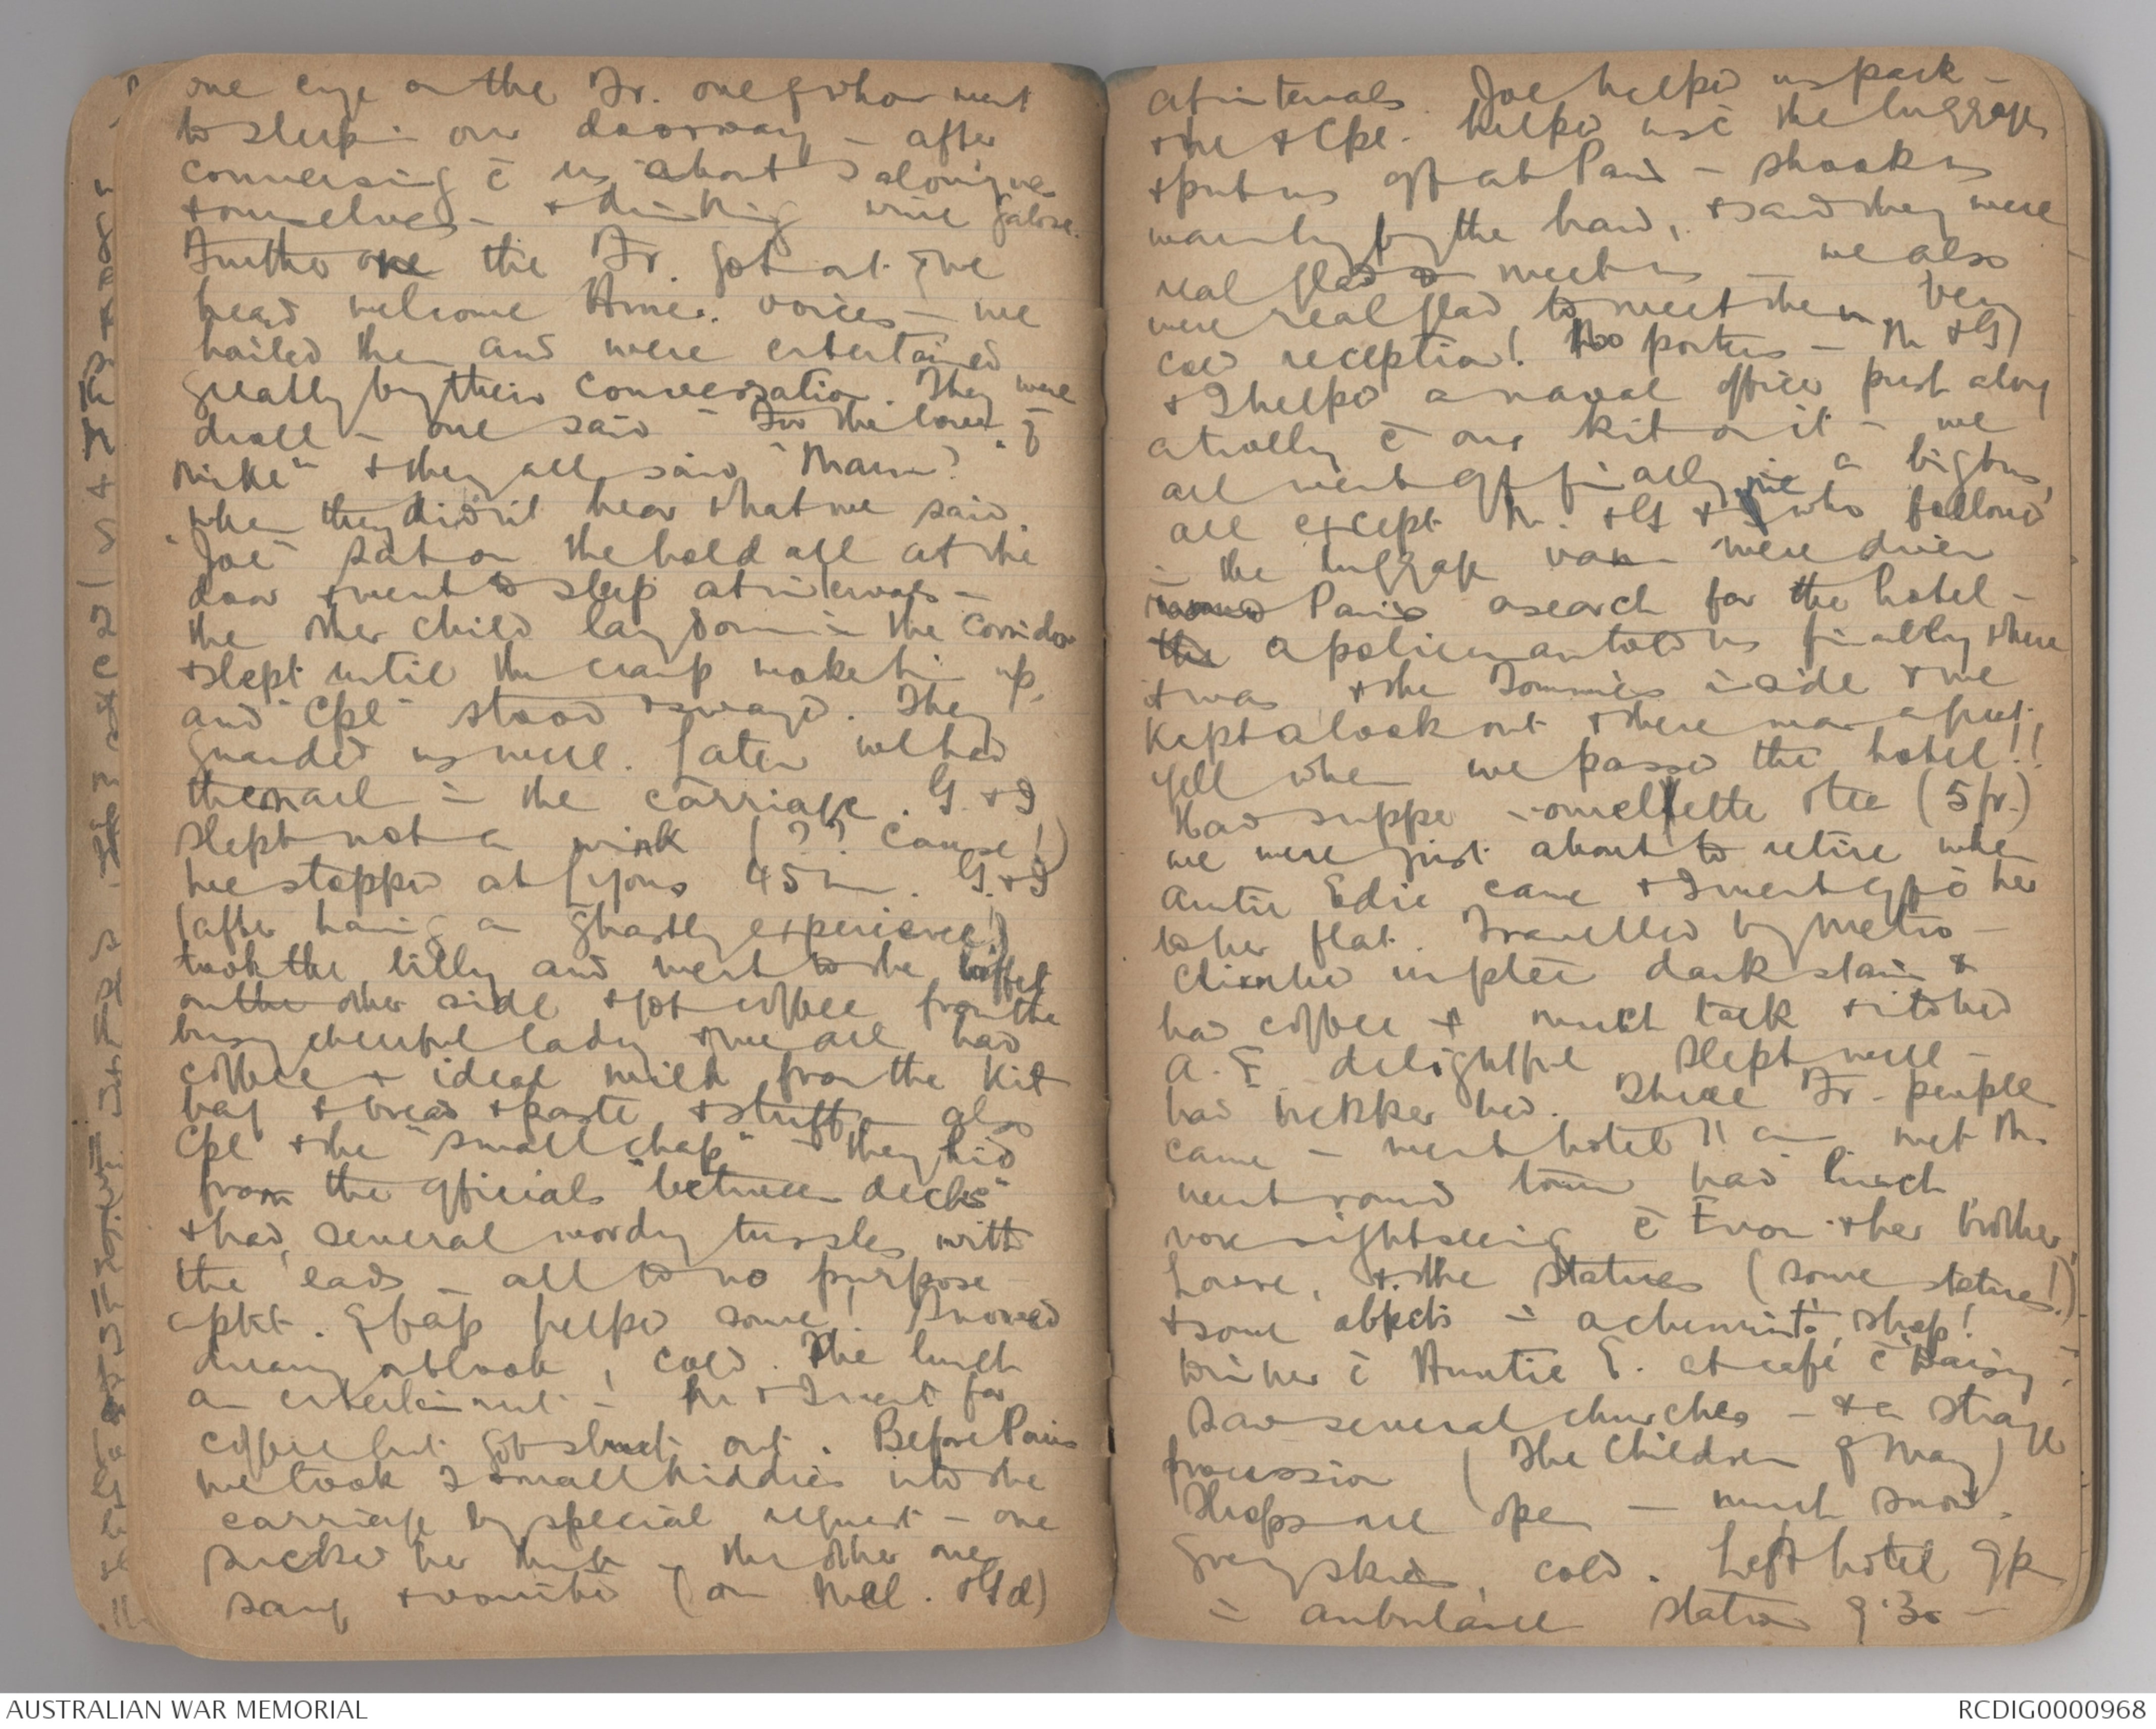 one eye on the Fr. one of whom went
to sleep in our doorway – after
conversing c̄ us about Salonique
& ourselves – & drinking wine galore.
Further on the Fr. got out & we
heard welcome Amer. voices – we
hailed them and were entertained
greatly by their conversation. They were
droll – one said "For the love of
Mike" & they all said "Mam?"
when they didn't hear what we said.
"Joe" sat on the hold all at the
door & went to sleep at intervals –
the other child lay down in the corridor
& slept until the cramp woke him up,
and "Cpl" stood & swayed. They
guarded us well. Later we had
them all in the carriage. G. & I
slept not a wink (?? cause!)
We stopped at Lyons 45 m. G. & I
(after having a ghastly experience!)
took the billy and went to the buffet
on the other side & got coffee from the
busy cheerful lady & we all had
coffee & ideal milk from the kit
bag & bread & paste & stuff – also
Cpl & the "small chap" – they hid
from the officials "between decks"
& had several wordy tussles with
the lads – all to no purpose
helped some! Snowed
dreary outlook, cold. The lunch
an entertainment – M & I went for
coffee but got shut out. Before Paris
we took 2 small kiddies into the
carriage by special request – one
sucked her thumb – the other one
sang & vomited (on
at intervals. Joe helped us pack –
& he & Cpl. helped us c̄ the luggage
& put us off at Paris – shook us
warmly by the hand, & said they were
real glad to meet us – we also
were real glad to meet them. Very
cold reception! No porters – M & G
& I helped a naval officer push along
a trolly c̄ our kit on it – we
all went off finally in a big bus,
all except M. & G & I who followed
in the luggage van – were driven
round Paris a search for the hotel –
the a policeman told us finally where
it was & the Tommies inside & we
kept a look out & there was a great
yell when we passed the hotel!!
Had supper – omelette etc (5 fr.)
we were just about to retire when
Auntie Edie came & I went off c̄ her
to her flat. Travelled by metro –
climbed up the dark stairs &
had coffee & much talk & to bed
A. E. delightful Slept well –
had brekker bed. Three Fr. people
came – went hotel 11 am met M.
went round town had lunch
more sightseeing c̄ & her brother,
Louvre, & the statues (some statues!)
& some objects in a chemist's shop!
Dinner c̄ Auntie E. at café c̄ Daisy.
Saw several churches – & a strange
procession (The Children of Mary)
Shops all open – much snow.
Grey skies, cold. Left hotel 9 pm
in ambulance station 9.30 –
AUSTRALIAN WAR MEMORIAL
RCDIG0000968